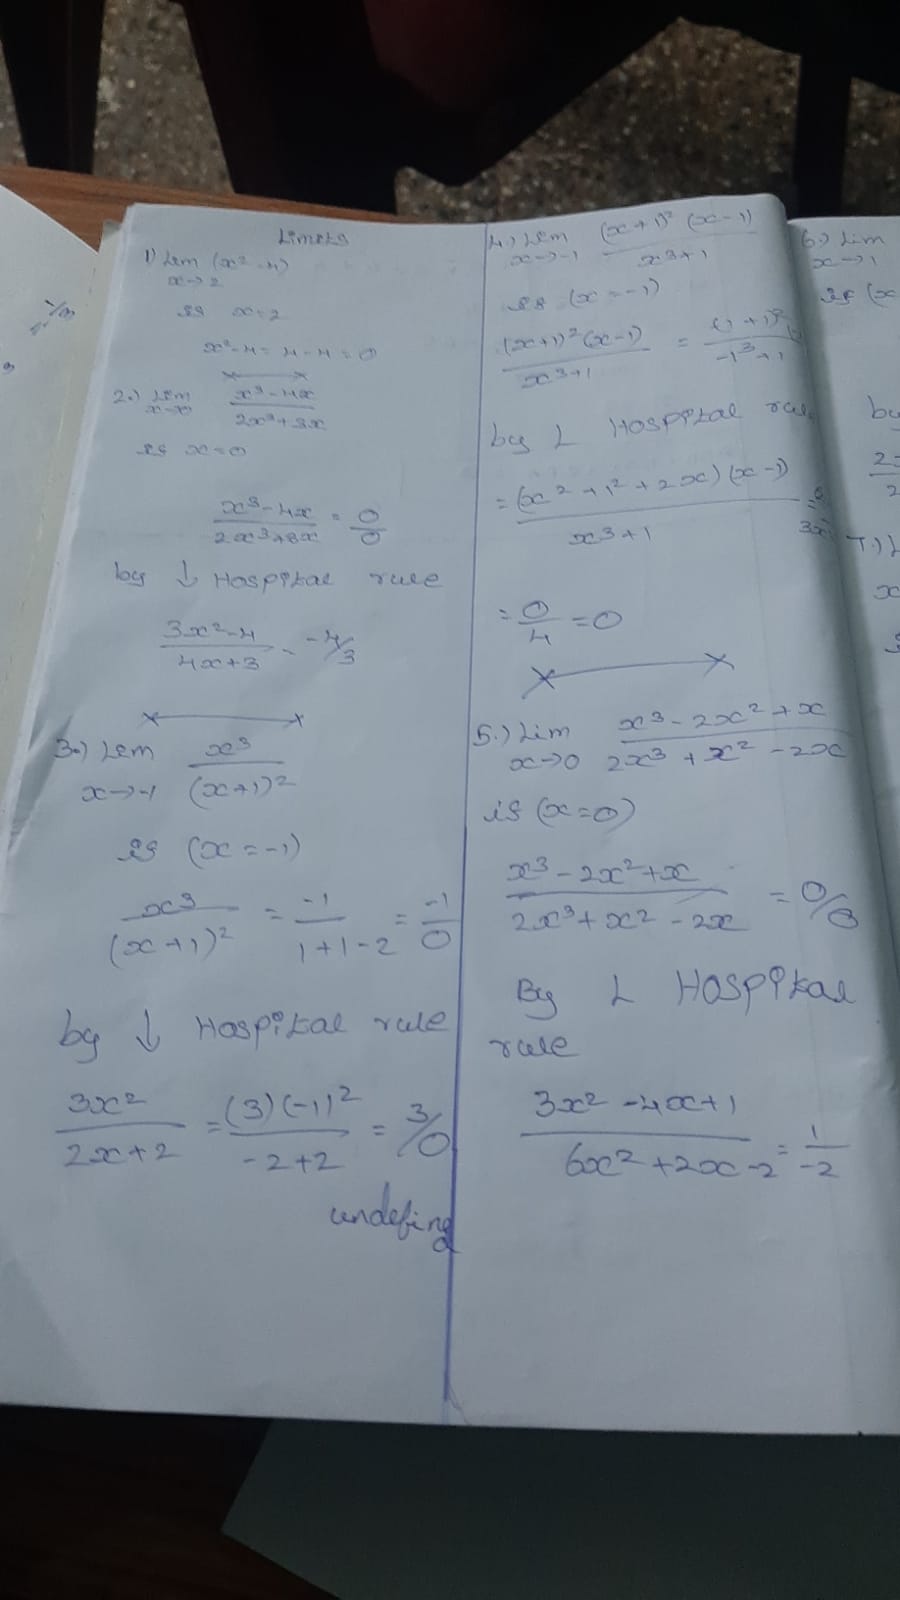 Limits
1) Lim (x² - 4)
x→2
if x=2
x²-4 = 4-4 = 0
2.) Lim x³-4x
x→0 2x²+3x
if x=0
x³-4x = 0
2x³+3x 0
by L Hospital rule
3x²-4 = -4/3
4x+3
3.) Lim x³
x→-1 (x+1)²
if (x = -1)
x³ = -1 = -1
(x+1)² 1+1-2 0
by L Hospital rule
3x² = (3)(-1)² = 3/0
2x+2 -2+2
undefined
4.) Lim (x+1)² (x-1)
x→-1 x³+1
if (x = -1)
(x+1)²(x-1) =
x³+1 -1³+1
by L Hospital rule
= (x²+1²+2x)(x-1)
x³+1
= 0 = 0
4
5.) Lim x³-2x²+x
x→0 2x³+x²-2x
if (x=0)
x³-2x²+x = 0/0
2x³+x²-2x
By L Hospital
rule
3x²-4x+1 = 1
6x²+2x-2 -2
6.) Lim
x→1
if (x
by
7.) L
x